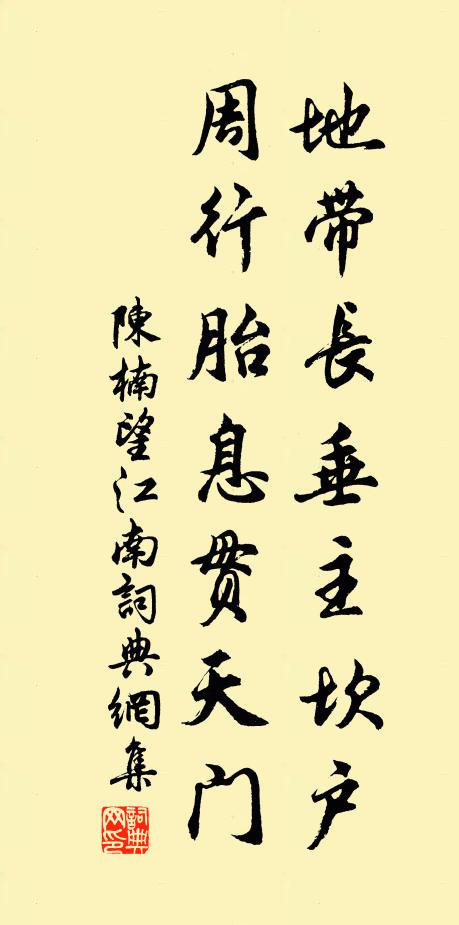 地带長垂主坎户
周行胎息贯天门
陳楠望江南詞典網集
詞典网印